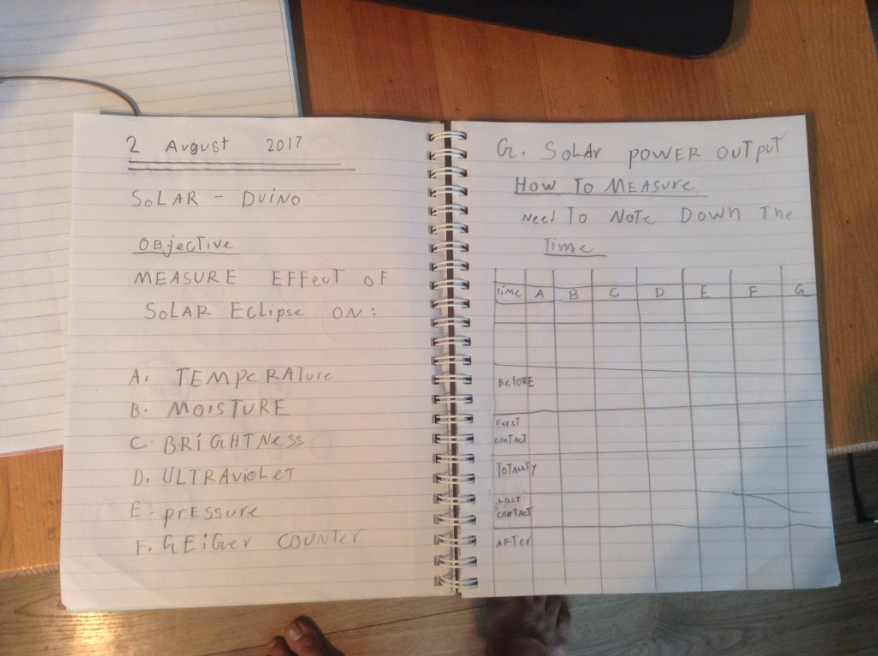 2 August 2017
SOLAR - DUINO
OBjecTive
MEASURE EFFecT OF
SOLAR EcLipse ON:
A. TEMPeRATure
B. MOISTURE
C. BRiGHTNess
D. ULTRAvioLeT
E. prEssure
F. GEiGer COUNTer
G. SOLAr POWER OUTpuT
HOW TO MEASure
Need TO NoTe DOWN The
Time
Time A B C D E F G
BeFORE
First
conTAcT
ToTALiTy
LAST
conTAcT
AFTer